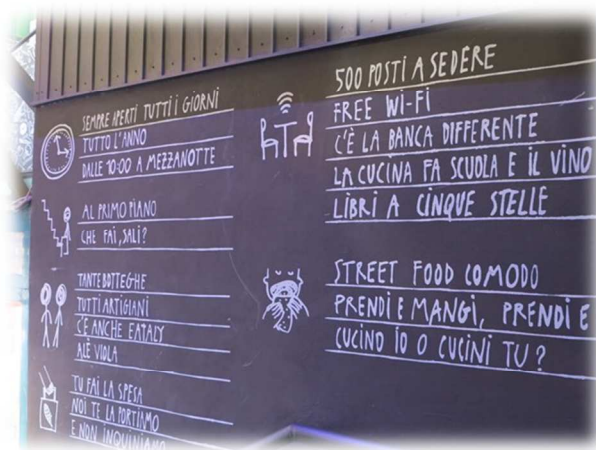 SEMPRE APERTI TUTTI I GIORNI
TUTTO L'ANNO
DALLE 10:00 A MEZZANOTTE
AL PRIMO PIANO
CHE FAI, SALI?
TANTE BOTTEGHE
TUTTI ARTIGIANI
C'È ANCHE EATALY
ALÈ VIOLA
TU FAI LA SPESA
NOI TE LA PORTIAMO
E NON INQUINIAMO
500 POSTI A SEDERE
FREE WI-FI
C'È LA BANCA DIFFERENTE
LA CUCINA FA SCUOLA E IL VINO
LIBRI A CINQUE STELLE
STREET FOOD COMODO
PRENDI E MANGI, PRENDI E
CUCINO IO O CUCINI TU?